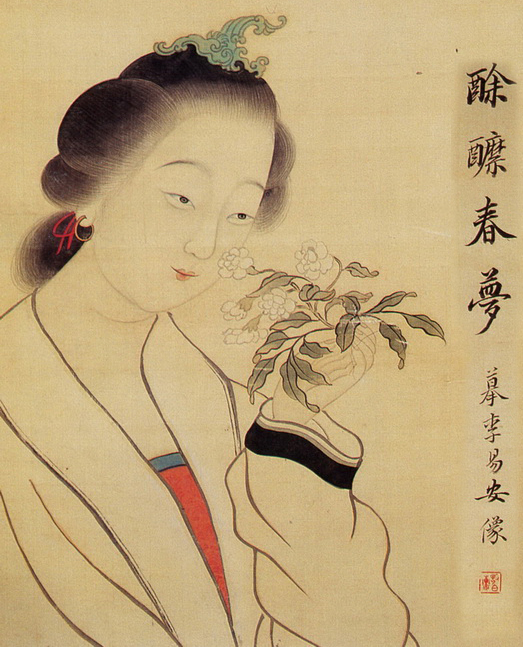 酴醾春夢
摹李易安像